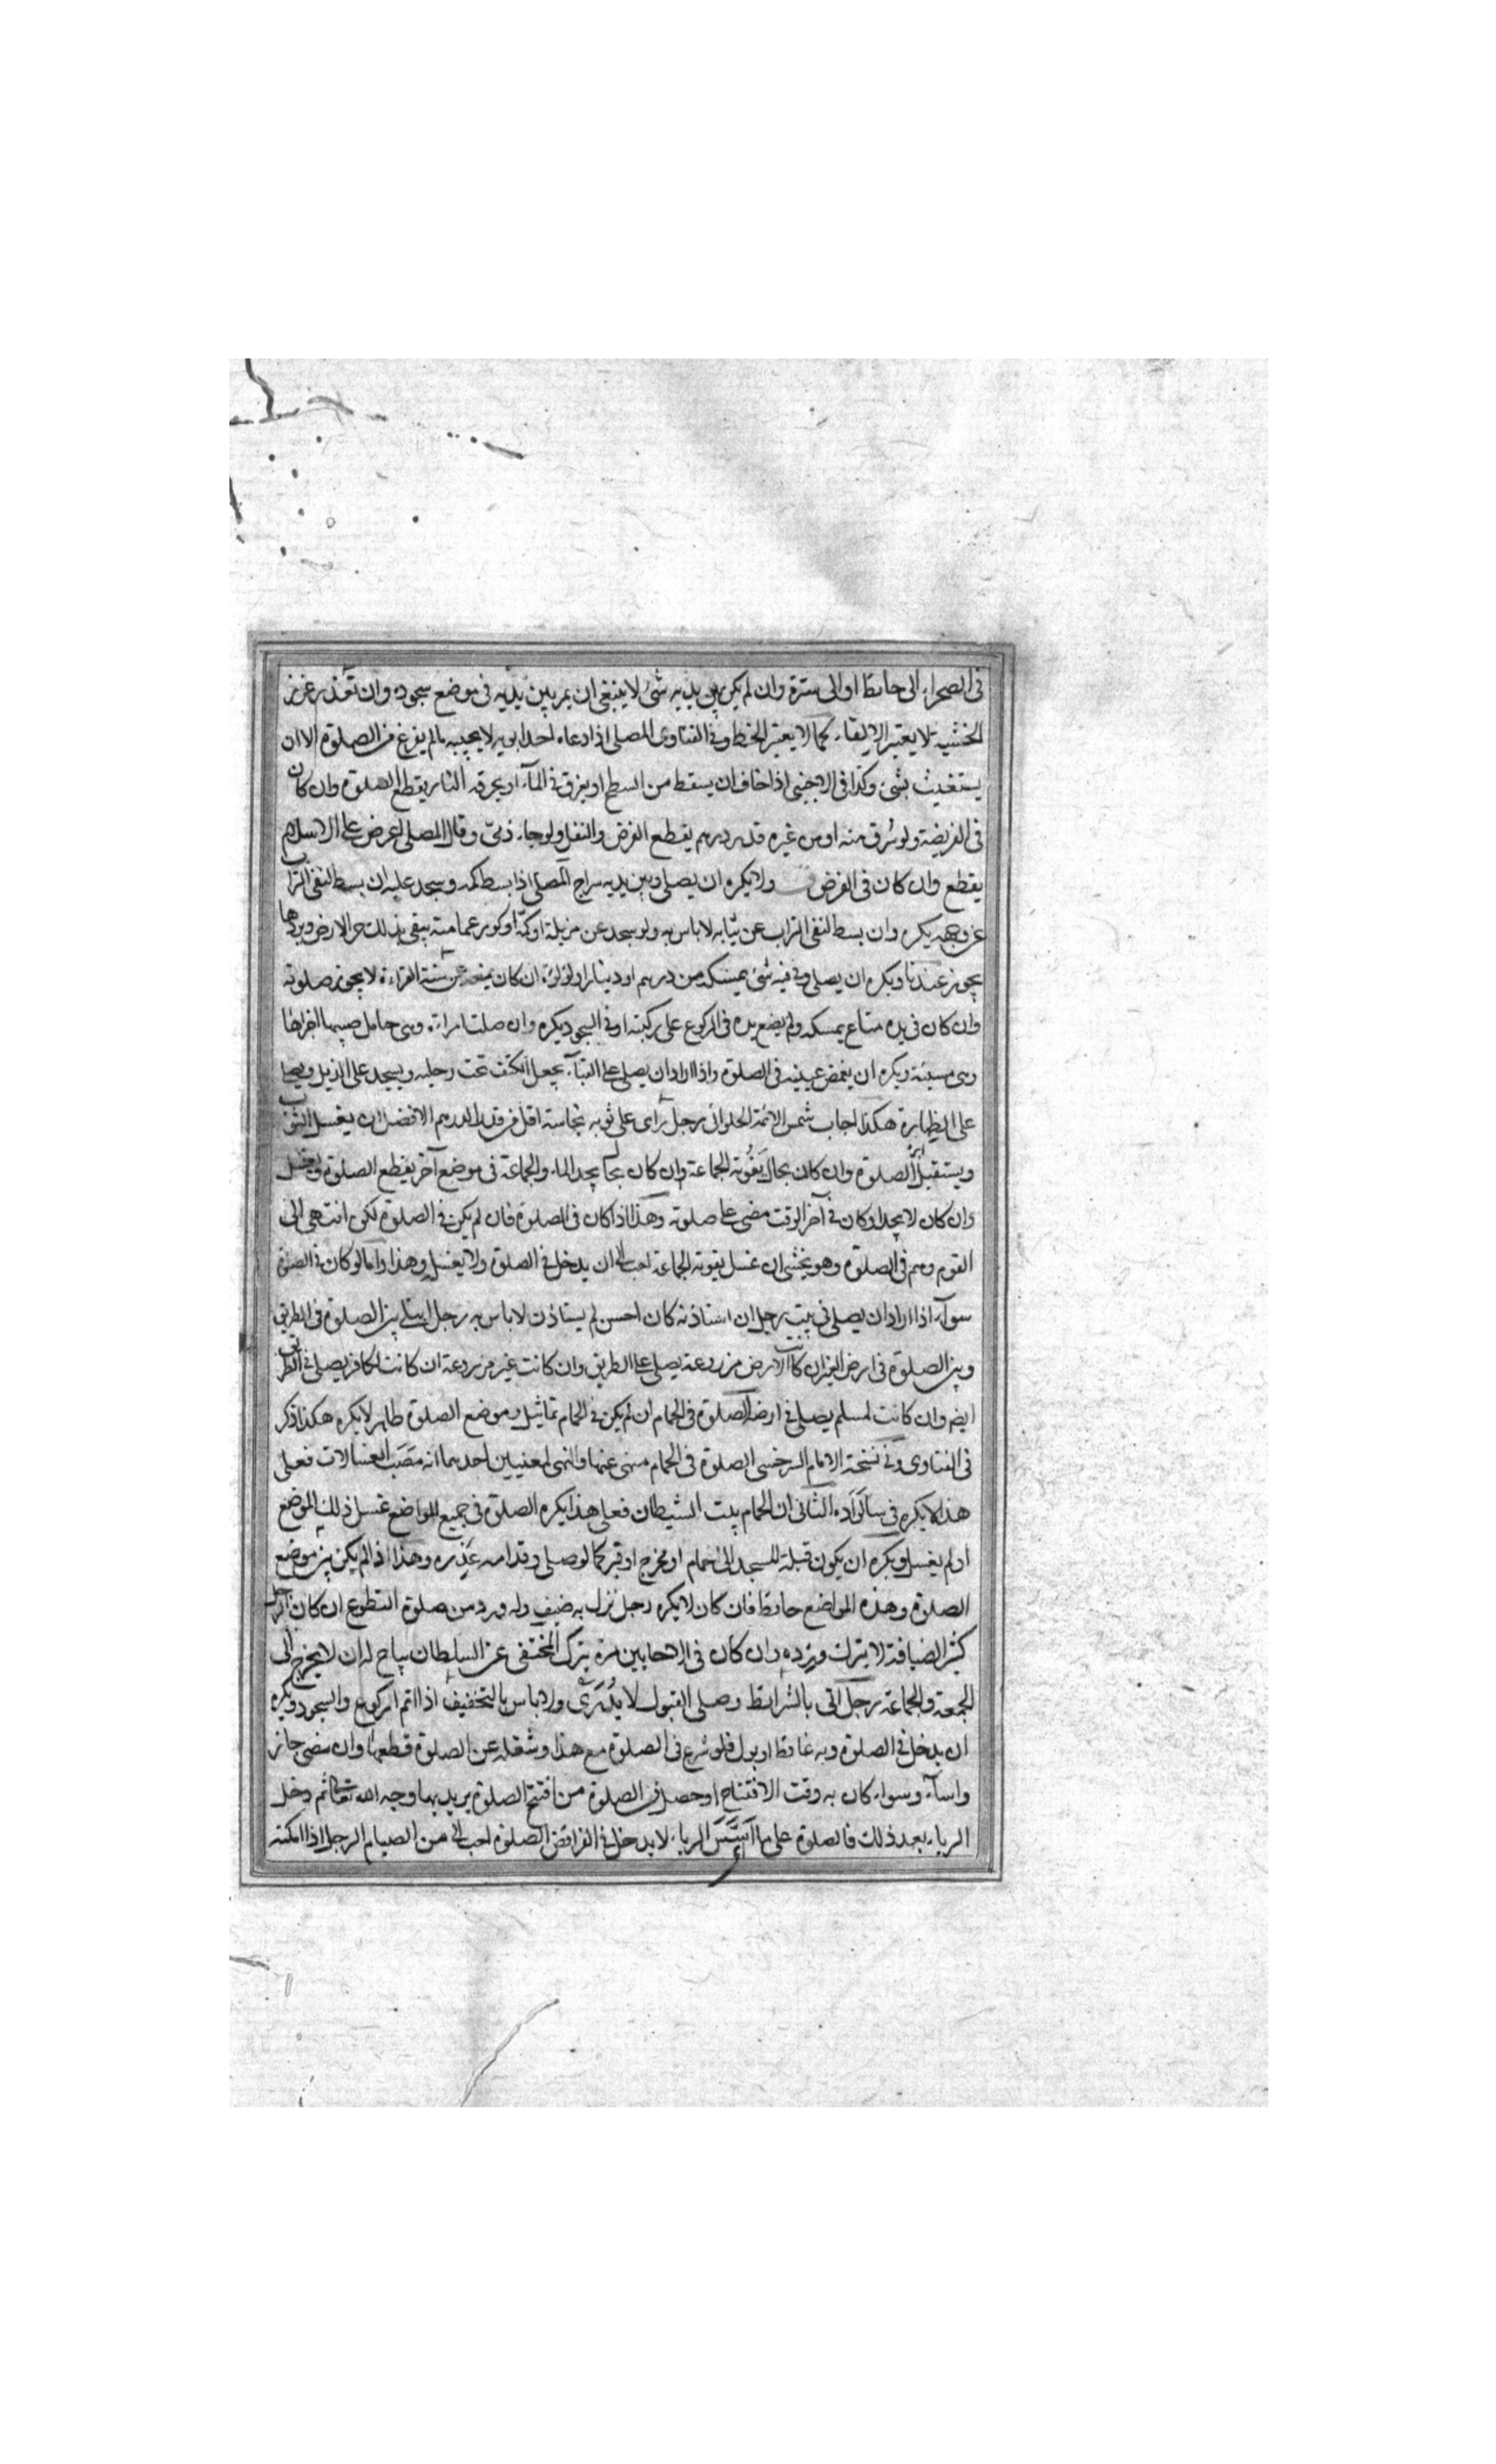 في الصحراء الى حائط او الى سترة وان لم يكن بين يديه شئ لا ينبغي ان يمر بين يديه في موضع سجوده وان تعذر غرز
الخشبة لا يعتبر الالقاء كما لا يعتبر الخط وفي الفتاوى المصلى اذا دعاه احد ابويه لا يجيبه مالم يفرغ من الصلوة الا ان
يستغيث بشئ وكذا في الاجنبي اذا خاف ان يسقط من السطح او يغرق في المآء او يحرقه النار يقطع الصلوة وان كان
في الفريضة ولو سُرق منه او من غيره قدر درهم يقطع الفرض والنفل ولو جاء ذمّى وقال للمصلى اعرض علي الاسلام
يقطع وان كان في الفرض ولا يكره ان يصلى وبين يديه سراج المصلى اذا بسط كمه وسجد عليه ان بسط لنفى التراب
عن وجهه يكره وان بسط لنفى التراب عن ثيابه لا باس به ولو سجد عن مزبلة او كمّه او كور عمامته يبقى بذلك حر الارض وبردها
يجوز عندنا ويكره ان يصلى وفي فيه شئ يمسكه من درهم او دينار او لؤلؤة ان كان يمنعه عن سنة القراءة لا يجوز صلوته
وان كان في يده متاع يمسكه ولم يضع يده في الركوع على ركبته او في السجود يكره وان صلت امراءة وهى حامل صبيها اجزاها
وهى مسيئة ويكره ان يغمض عينيه في الصلوة واذا اراد ان يصلى على القبآء يجعل الكتف تحت رجليه ويسجد على الذيل ويصلى
على الظهارة هكذا اجاب شمس الائمة الحلوائى رجل رأى على ثوبه نجاسة اقل من قدر الدرهم الافضل ان يغسل الثوب
ويستقبل الصلوة وان كان بحال يَفُوته الجماعة وان كان بحال يجد الماء والجماعة في موضع آخر يقطع الصلوة ويغسل
وان كان لا يجد او كان في آخر الوقت مضى على صلوته وهذا اذا كان في الصلوة فان لم يكن في الصلوة لكن انتهى الى
القوم وهم في الصلوة وهو يخشى ان غسل يفوته الجماعة احب الى ان يدخل في الصلوة ولا يغسل وهذا وامالو كان في الصلوة
سوآء اذا اراد ان يصلى في بيت رجل ان استاذنه كان احسن لم يستاذن لا باس به رجل ابتلى بين الصلوة في الطريق
وبين الصلوة في ارض الغير ان كانت الارض مزروعة يصلى على الطريق وان كانت غير مزروعة ان كانت لكافر يصلى في الطريق
ايضم وان كانت لمسلم يصلى في ارضه الصلوة في الحمام ان لم يكن في الحمام تماثيل وموضع الصلوة طاهر لا يكره هكذا ذكر
في الفتاوى وفي نسخة الامام السرخسى الصلوة في الحمام منهى عنها والنهى لمعنيين احدهما انه مَصَبّ الغسالات فعلى
هذا لا يكره في الثاني ان الحمام بيت الشيطان فعلى هذا يكره الصلوة في جميع المواضع غسل ذلك الموضع
او لم يغسل ويكره ان يكون قبلة المسجد الى حمام او مخرج او قبر كما لو صلى وقدامه عَذِره وهذا اذا لم يكن بين موضع
الصلوة وهذه المواضع حائط فان كان لا يكره رجل نزل به ضيف وله ورد من صلوة التطوع ان كان الرجل
كثير الضيافة لا يترك ورده وان كان في الاحايين مرة يترك المختفى عن السلطان يباح له ان لا يخرج الى
الجمعة والجماعة رجل اتى بالشرائط وصلى القبول لا يُدْرَى ولا باس بالتخفيف اذا اتم الركوع والسجود ويكره
ان يدخل في الصلوة وبه غائط او بول فلو شرع في الصلوة مع هذا وشغله عن الصلوة قطعها وان مضى جاز
واسآء وسواء كان به وقت الافتتاح او حصل في الصلوة من افتتح الصلوة يريد بها وجه الله تعالى ثم دخل
الرياء بعد ذلك فالصلوة على ما اَسَّسَ الرياء لا يدخل في الفرائض الصلوة احب الى من الصيام الرجل اذا امكنه